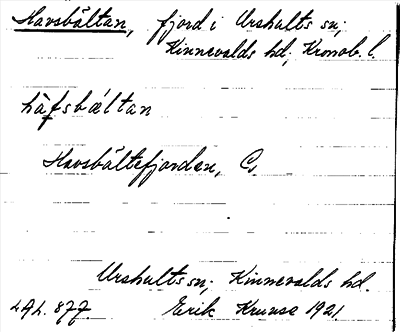 Havsbältan, fjord i Urshults sn;
Kinnevalds hd, Kronob. l.
hàfsbæltan
Havsbältefjorden, G
Urshults sn, Kinnevalds hd.
LAL. 877. Erik Kruuse 1921